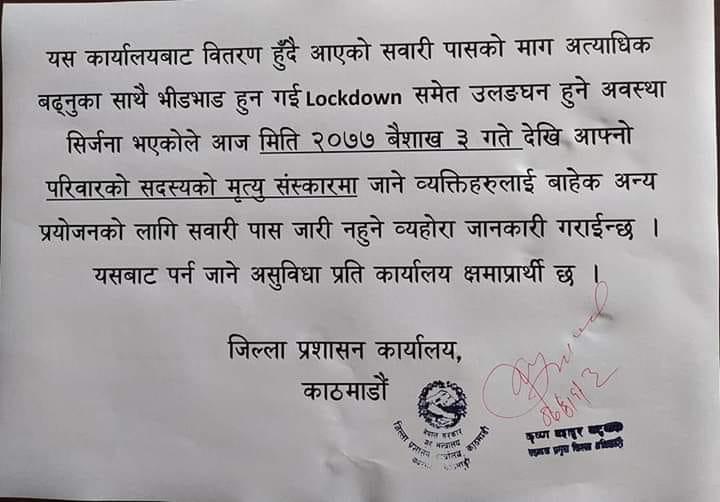 यस कार्यालयबाट वितरण हुँदै आएको सवारी पासको माग अत्याधिक
बढ्नुका साथै भीडभाड हुन गई Lockdown समेत उलङघन हुने अवस्था
सिर्जना भएकोले आज मिति २०७७ बैशाख ३ गते देखि आफ्नो
परिवारको सदस्यको मृत्यु संस्कारमा जाने व्यक्तिहरुलाई बाहेक अन्य
प्रयोजनको लागि सवारी पास जारी नहुने व्यहोरा जानकारी गराईन्छ ।
यसबाट पर्न जाने असुविधा प्रति कार्यालय क्षमाप्रार्थी छ ।
जिल्ला प्रशासन कार्यालय,
काठमाडौं
नेपाल सरकार
गृह मन्त्रालय
जिल्ला प्रशासन कार्यालय, काठमाडौं
कृष्ण बहादुर
सहायक प्रमुख जिल्ला अधिकारी